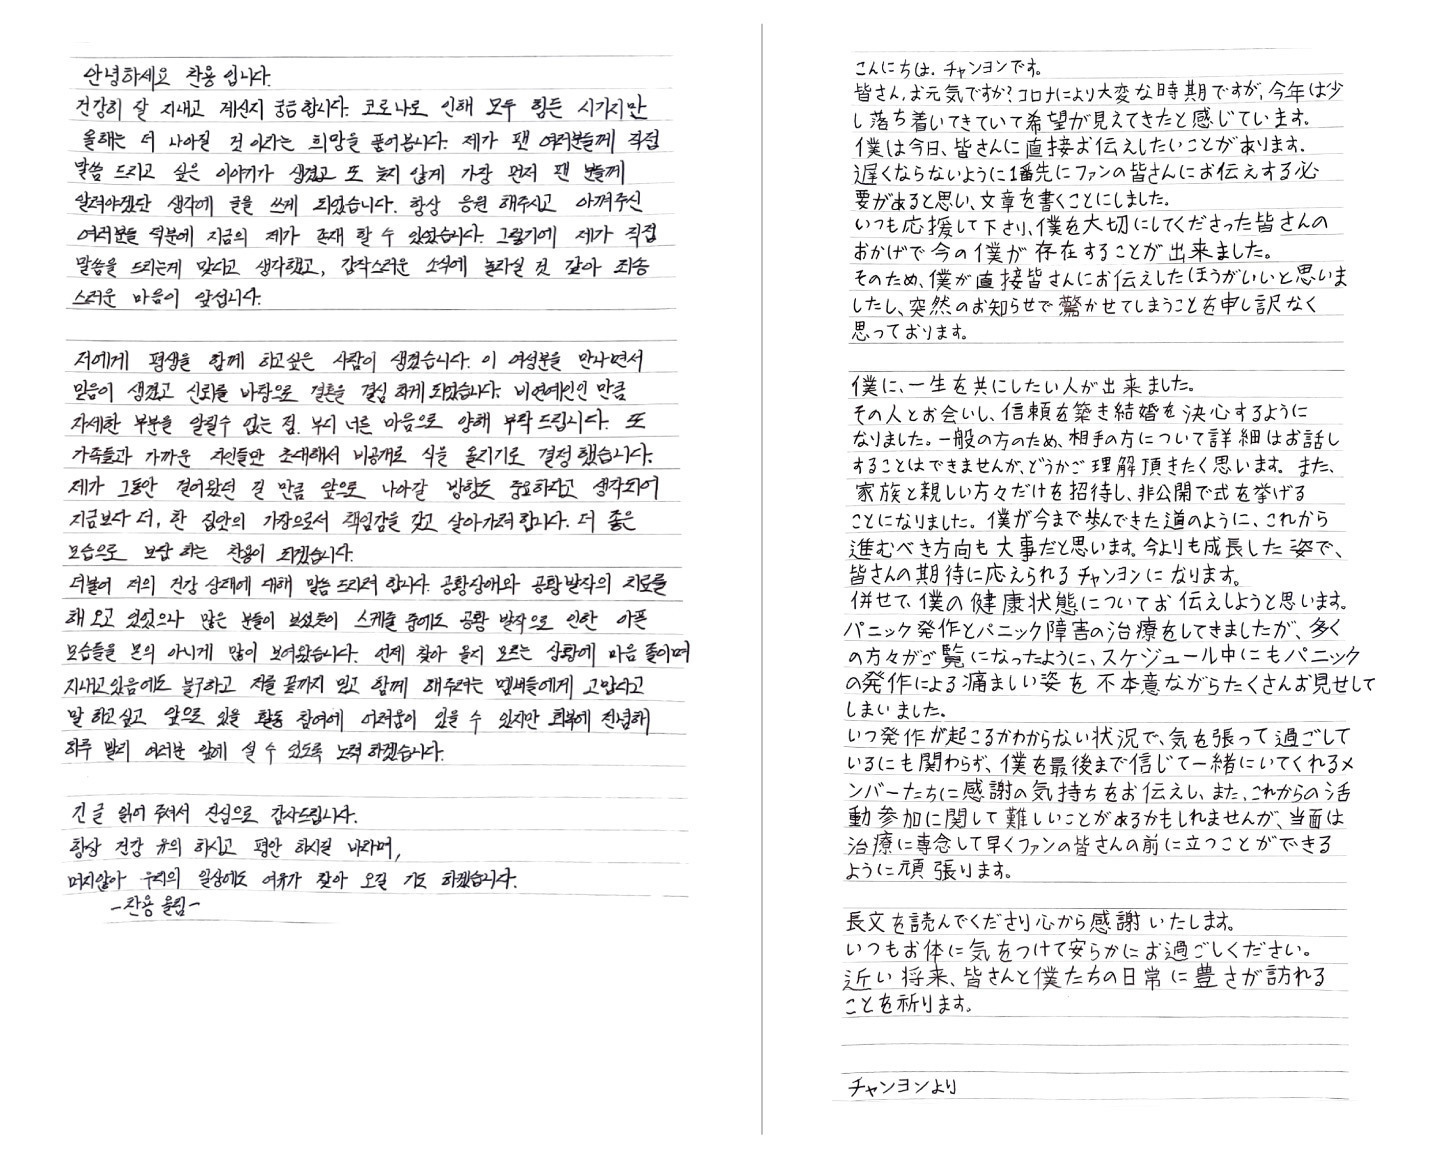 안녕하세요 찬용 입니다.
건강히 잘 지내고 계신지 궁금합니다. 코로나로 인해 모두 힘든 시기지만
올해는 더 나아질 것 이라는 희망을 품어봅니다. 제가 팬 여러분들께 직접
말씀 드리고 싶은 이야기가 생겼고 또 늦지 않게 가장 먼저 팬 분들께
알려야겠단 생각에 글을 쓰게 되었습니다. 항상 응원 해주시고 아껴주신
여러분들 덕분에 지금의 제가 존재 할 수 있었습니다. 그렇기에 제가 직접
말씀을 드리는게 맞다고 생각했고, 갑작스러운 소식에 놀라실 것 같아 죄송
스러운 마음이 앞섭니다.
저에게 평생을 함께 하고싶은 사람이 생겼습니다. 이 여성분을 만나면서
믿음이 생겼고 신뢰를 바탕으로 결혼을 결심 하게 되었습니다. 비연예인인 만큼
자세한 부분을 알릴수 없는 점. 부디 너른 마음으로 양해 부탁 드립니다. 또
가족들과 가까운 지인들만 초대해서 비공개로 식을 올리기로 결정 했습니다.
제가 그동안 걸어왔던 길 만큼 앞으로 나아갈 방향도 중요하다고 생각되어
지금보다 더, 한 집안의 가장으로서 책임감을 갖고 살아가려 합니다. 더 좋은
모습으로 보답 하는 찬용이 되겠습니다.
더불어 저의 건강 상태에 대해 말씀 드리려 합니다. 공황장애와 공황발작의 치료를
해 오고 있었으나 많은 분들이 보셨듯이 스케줄 중에도 공황 발작으로 인한 아픈
모습들을 본의 아니게 많이 보여왔습니다. 언제 찾아 올지 모르는 상황에 마음 졸이며
지내고있음에도 불구하고 저를 끝까지 믿고 함께 해주려는 멤버들에게 고맙다고
말 하고싶고 앞으로 있을 활동 참여에 어려움이 있을 수 있지만 회복에 전념해
하루 빨리 여러분 앞에 설 수 있도록 노력 하겠습니다.
긴 글 읽어 주셔서 진심으로 감사드립니다.
항상 건강 유의 하시고 평안 하시길 바라며,
머지않아 우리의 일상에도 여유가 찾아 오길 기도 하겠습니다.
-찬용 올림-
こんにちは. チャンヨンです。
皆さん,お元気ですか?コロナにより大変な時期ですが、今年は少
し落ち着いてきていて希望が見えてきたと感じています。
僕は今日、皆さんに直接お伝えしたいことがあります。
遅くならないように1番先にファンの皆さんにお伝えする必
要があると思い、文章を書くことにしました。
いつも応援して下さり、僕を大切にしてくださった皆さんの
おかげで今の僕が存在することが出来ました。
そのため、僕が直接皆さんにお伝えしたほうがいいと思いま
したし、突然のお知らせで驚かせてしまうことを申し訳なく
思っております。
僕に、一生を共にしたい人が出来ました。
その人とお会いし、信頼を築き結婚を決心するように
なりました。一般の方のため、相手の方について詳細はお話し
することはできませんが、どうかご理解頂きたく思います。また、
家族と親しい方々だけを招待し、非公開で式を挙げる
ことになりました。僕が今まで歩んできた道のように、これから
進むべき方向も大事だと思います。今よりも成長した姿で、
皆さんの期待に応えられるチャンヨンになります。
併せて、僕の健康状態についてお伝えしようと思います。
パニック発作とパニック障害の治療をしてきましたが、多く
の方々がご覧になったように、スケジュール中にもパニック
の発作による痛ましい姿を不本意ながらたくさんお見せして
しまいました。
いつ発作が起こるかわからない状況で、気を張って過ごして
いるにも関わらず、僕を最後まで信じて一緒にいてくれるメ
ンバーたちに感謝の気持ちをお伝えし、また、これからの活
動参加に関して難しいことがあるかもしれませんが、当面は
治療に専念して早くファンの皆さんの前に立つことができる
ように頑張ります。
長文を読んでくださり心から感謝いたします。
いつもお体に気をつけて安らかにお過ごしください。
近い将来、皆さんと僕たちの日常に豊さが訪れる
ことを祈ります。
チャンヨンより